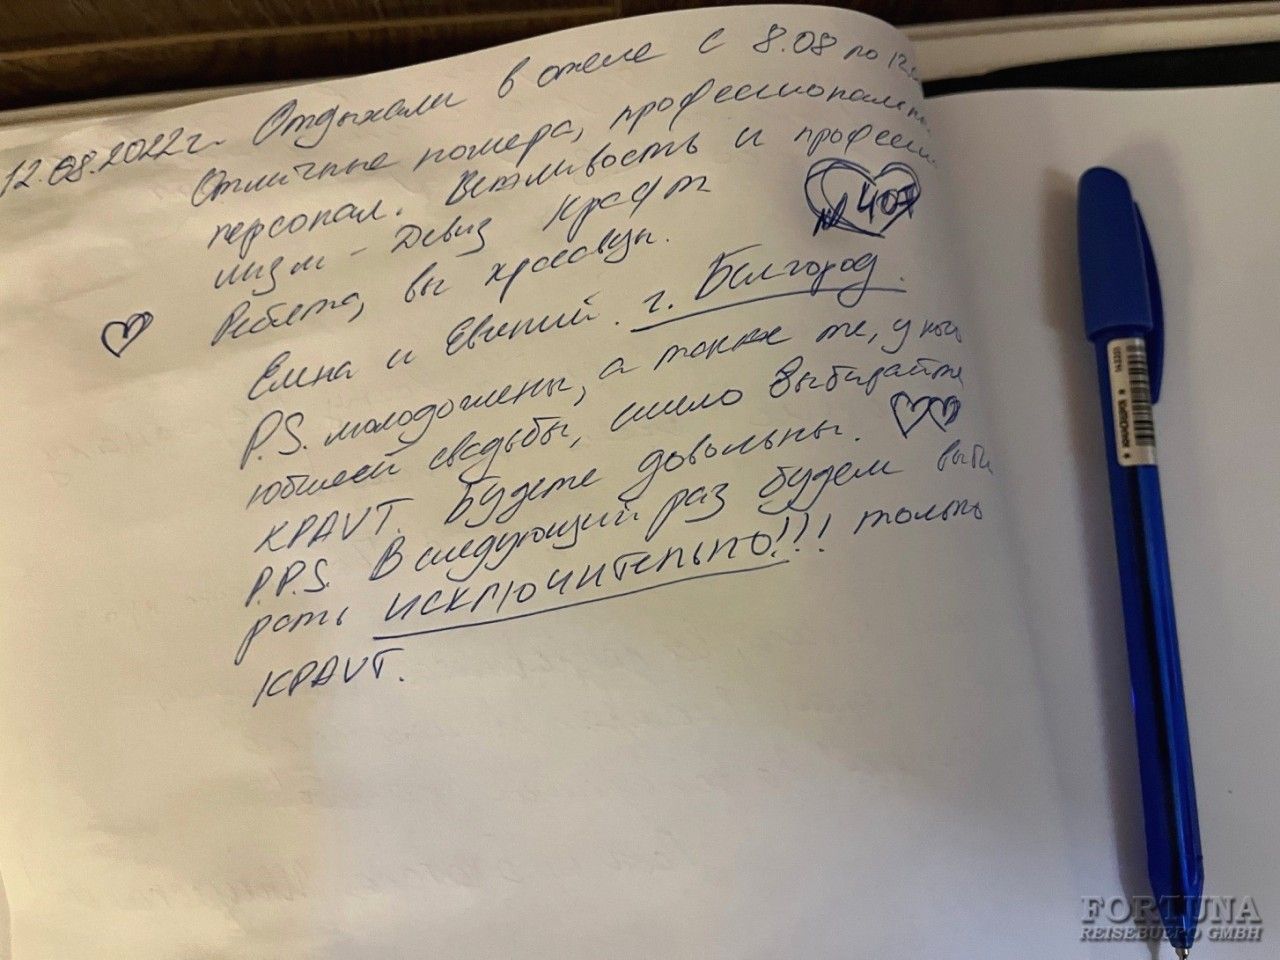 12.08.2022г. Отдыхали в отеле с 8.08 по 12.
Отличные номера, профессиональн.
персонал. Вежливость и професси
лизм - Девиз Крафт
№ 407
Ребята, вы красавцы.
Елена и Евгений. г. Белгород.
P.S. молодожены, а также те, у ког
юбилей свадьбы, смело выбирайте
КРАVT. Будете довольны.
P.P.S. В следующий раз будем выби
рать ИСКЛЮЧИТЕЛЬНО!!! только
КРАVT.
FORTUNA
REISEBUERO GMBH